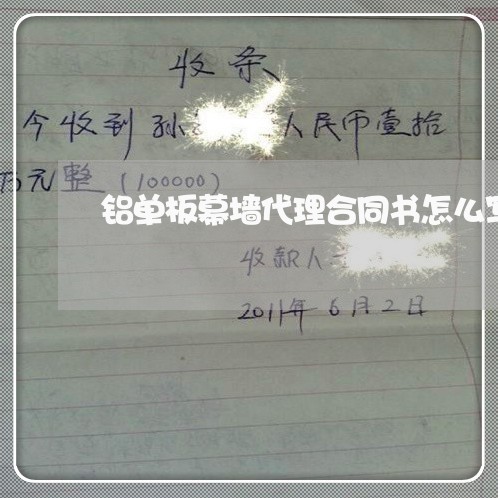 收条
今收到孙 人民币壹拾
万元整(100000)
铝单板幕墙代理合同书怎么写
收款人
2011年6月2日